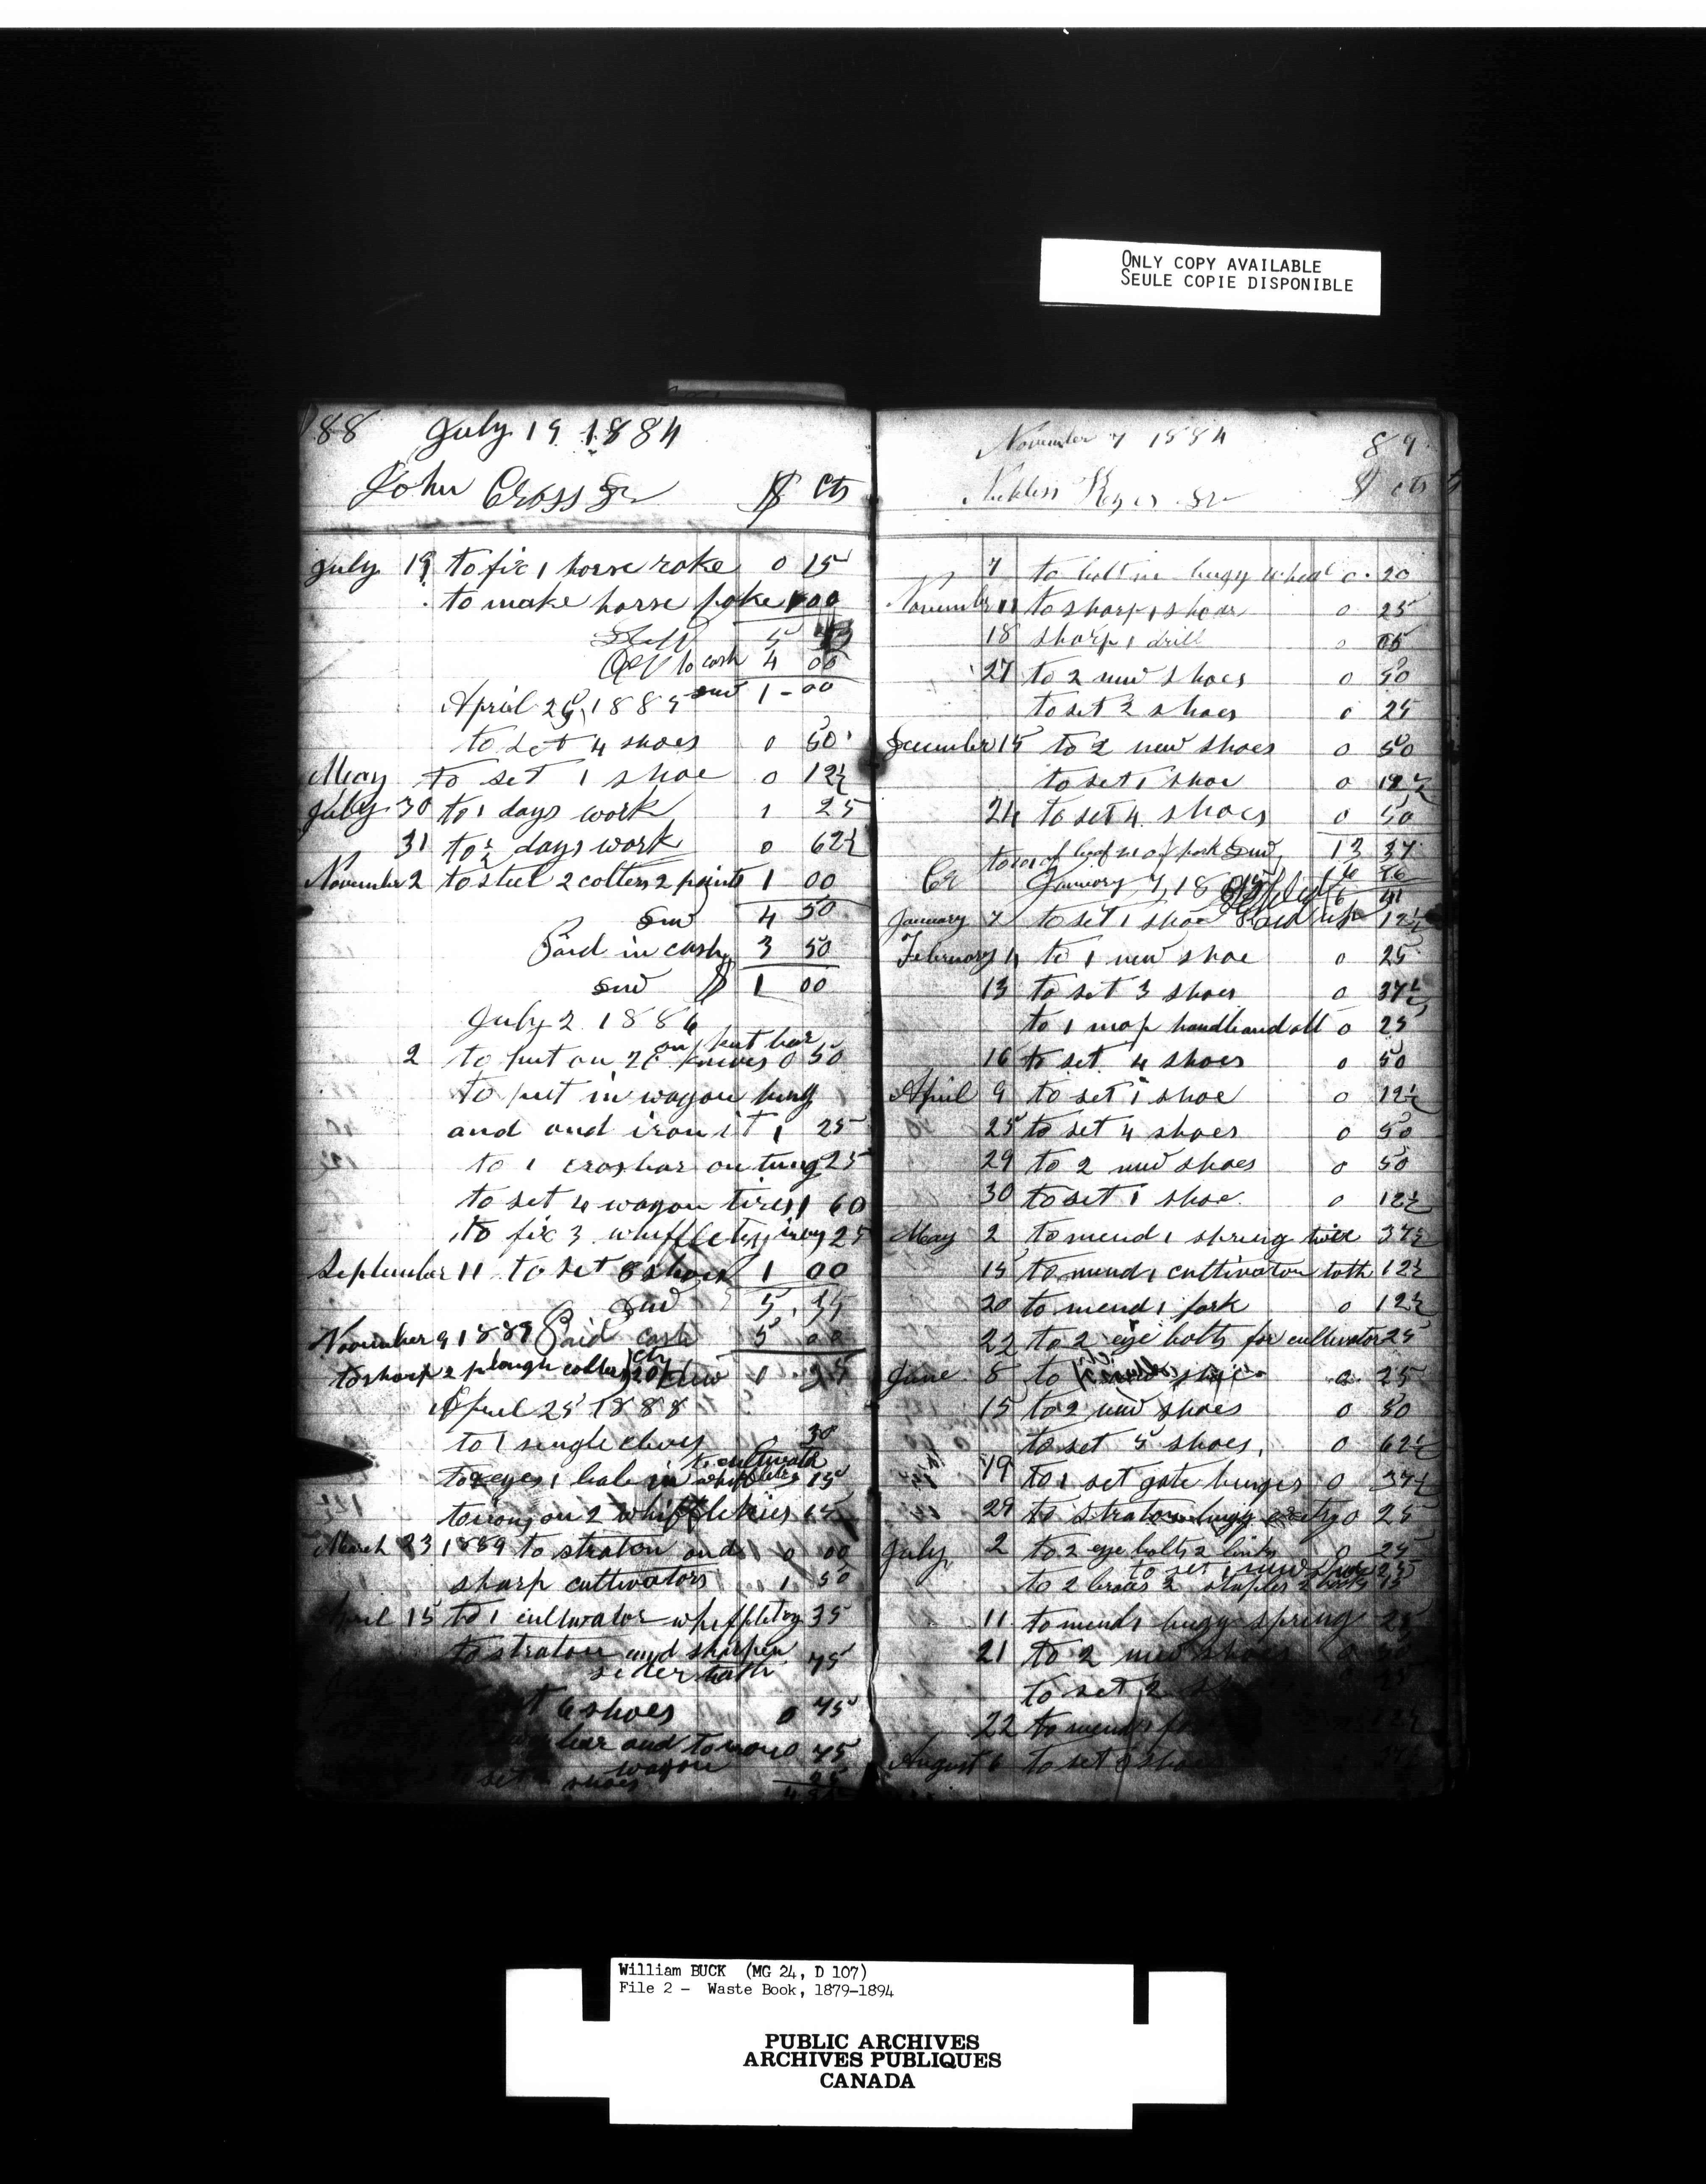 ONLY COPY AVAILABLE
SEULE COPIE DISPONIBLE
88 July 19 1884
John Cross Sr $ Cts
July 19 to fix 1 horse rake 0 15
to make horse poke 1 00
5
to cash 4 00
1-00
April 1885
to set 4 shoes 0 50
May to set 1 shoe 0 12½
July 30 to 1 days work 1 25
31 to ½ days work 0 62½
November 2 to steel 2 colters 2 points 1 00
Sum 4 50
Paid in cash 3 50
Sum $ 1 00
July 2 1886
on
2 to put on 26 knives 0 50
to put in wagon tung
and and iron it 1 25
to 1 crosbar on tung 25
to set 4 wagon tires 1 60
to fix 3 25
September 11 to set 8 shoes 1 00
Sum 5,35
November 9 1889 Paid cash 5 00
to sharp 2 plough colters cts 20
April 25 1888
to 1 single clevey 30
cultivator
to eyes 1 15
on 2 15
March 23 1889 to straton and 0 00
sharp cultivators 1 50
April 15 to 1 cultivator 35
to straton and sharpen
75
6 shoes 0 75
bar and 75
wagon
set shoes
November 7 1884 89
Sr $ cts
7 to bolt in bugy wheal 0.20
November 11 to sharp 1 shoe 0 25
18 sharp 1 drill 0 05
27 to 2 new shoes 0 50
to set 2 shoes 0 25
December 15 to 2 new shoes 0 50
to set 1 shoe 0 12½
24 to set 4 shoes 0 50
Sum 13 37
Cr January 7, 18
January 7 to set 1 shoe 12½
February 4 to 1 new shoe 0 25
13 to set 3 shoes 0 37½
to 1 mop handle and all 0 25
16 to set 4 shoes 0 50
April 9 to set 1 shoe 0 12½
25 to set 4 shoes 0 50
29 to 2 new shoes 0 50
30 to set 1 shoe 0 12½
May 2 to mend 1 spring 37½
15 to mend 1 cultivator toth 12½
20 to mend 1 fork 0 12½
22 to 2 eye bolts for cultivator 25
June 8 to 0 25
15 to 2 new shoes 0 50
to set 5 shoes 0 62½
19 to 1 set gate hinges 0 37½
29 to straton bugy 0 25
July 2 to 2 eye bolts 2 links 0 25
to set 1 new shoe 25
to 2 braas 2 staples 2 15
11 to mend 1 bugy spring 25
21 to 2 new shoes 0 50
to set 2
22 to mend 1
August 6 to set 3 shoes
William BUCK (MG 24, D 107)
File 2 - Waste Book, 1879-1894
PUBLIC ARCHIVES
ARCHIVES PUBLIQUES
CANADA